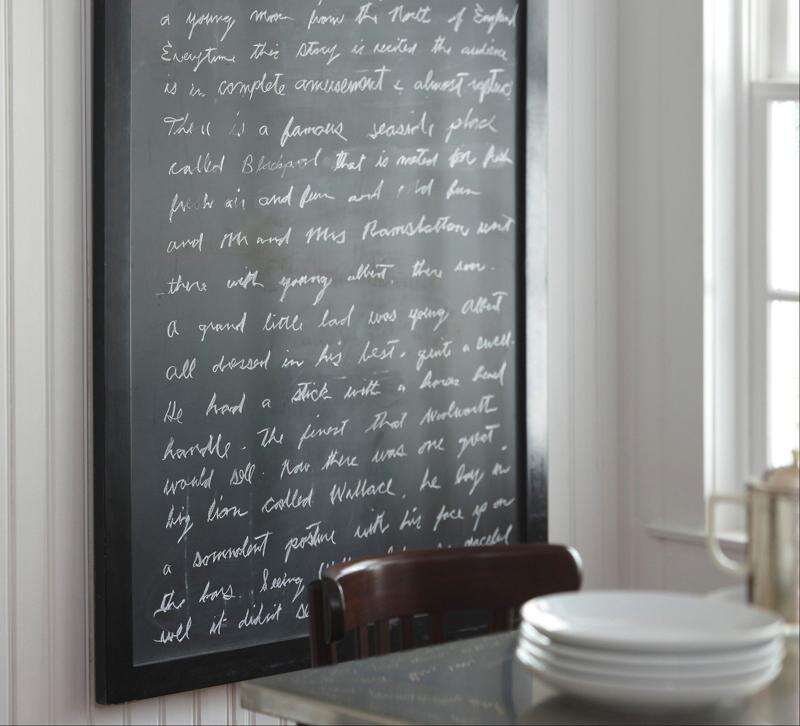 a young man from the North of England
Everytime this story is recited the audience
is in complete amusement & almost rapture
There is a famous seaside place
called Blackpool that is noted for fresh
fresh air and fun and
and Mr and Mrs Ramsbottom went
there with young albert. there son.
a grand little lad was young Albert
all dressed in his best. quite a swell.
He had a stick with a horse head
handle. The finest that Woolworth
would sell. Now there was one great
big lion called Wallace. he lay in
a somnolent posture with his face up on
the bars. Seeing
well it didn't